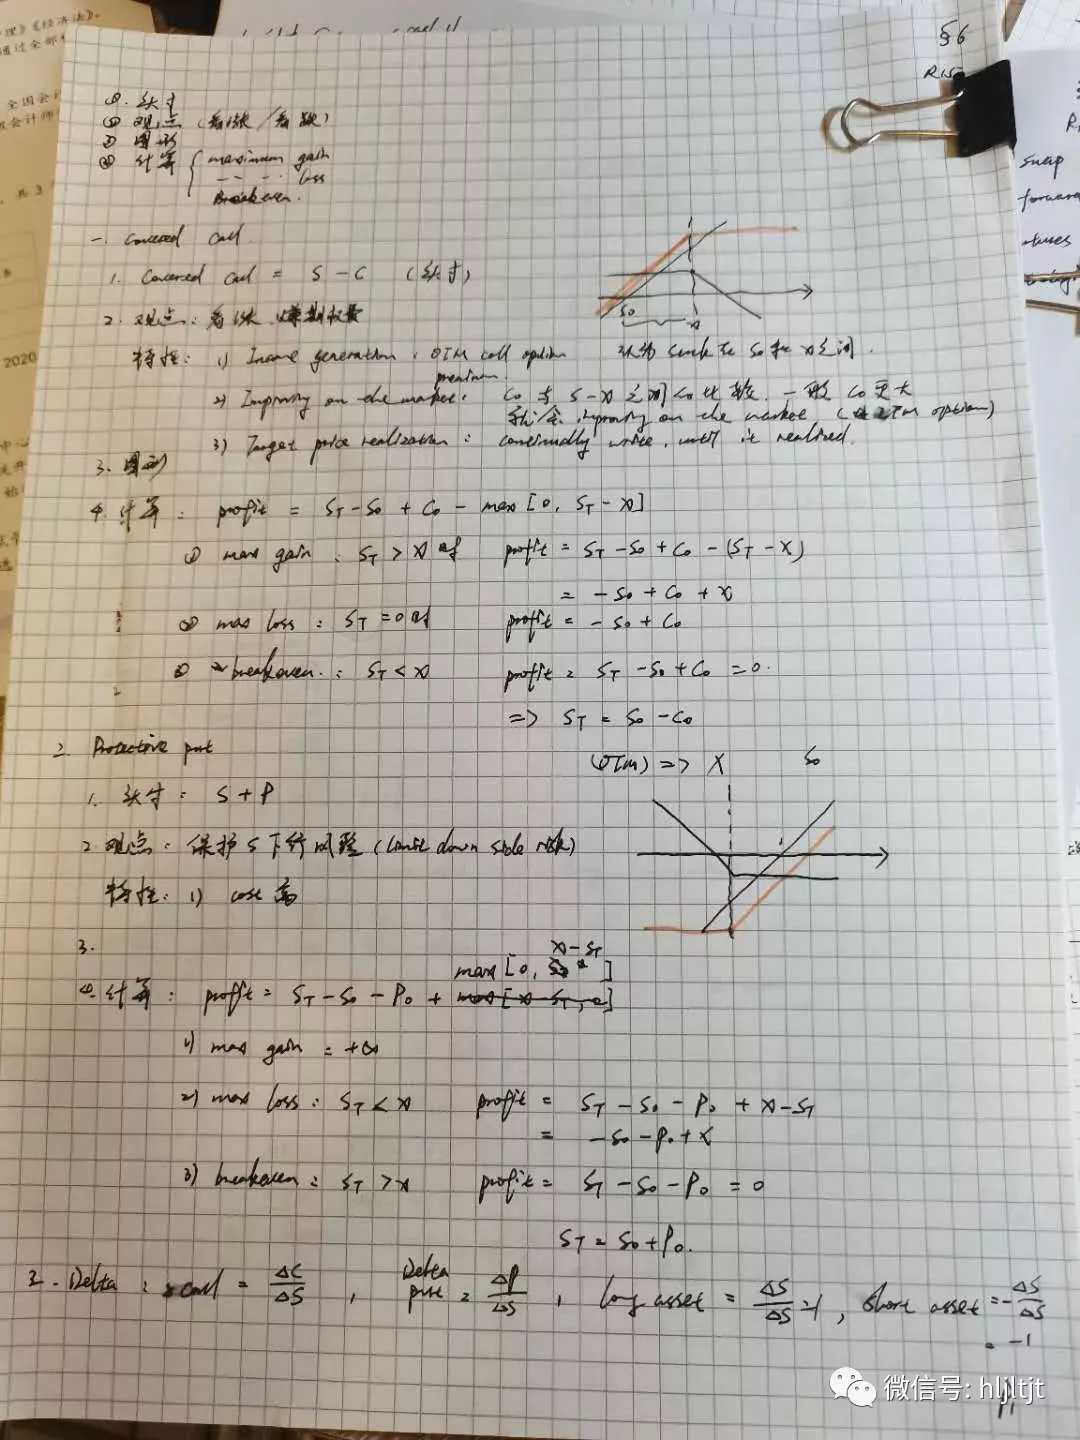 理》《经济法》.
通过全部
全国会计
§6
R15
①. 头寸
② 观点 (看涨/看跌)
③ 图形
④ 计算 { maximum gain
-- -- loss
Breakeven.
swap
forward
一. Covered call
1. Covered call = S - C (头寸)
2. 观点: 看涨. 赚期权费
特性: 1) Income generation: OTM call option 认为 stock在 S₀和X之间.
premium.
2) Improving on the market: C₀ 与 S-X 之间 比较. 一般 C₀更大
就会 improving on the market (ITM option)
3) Target price realization: continually write, until it realized.
2020
3. 图形
4. 计算: profit = S_T - S₀ + C₀ - max [0, S_T - X]
① max gain: S_T > X 时 profit = S_T - S₀ + C₀ - (S_T - X)
= - S₀ + C₀ + X
② max loss: S_T = 0 时 profit = - S₀ + C₀
③ breakeven.: S_T < X profit = S_T - S₀ + C₀ = 0.
=> S_T = S₀ - C₀
二. Protective put
(OTM) => X S₀
1. 头寸: S + P
2. 观点: 保护S下行风险 (limit down side risk)
特性: 1) cost 高
3.
X - S_T
max [0, ]
4. 计算: profit = S_T - S₀ - P₀ + max [X - S_T, 0]
1) max gain = +∞
2) max loss: S_T < X profit = S_T - S₀ - P₀ + X - S_T
= - S₀ - P₀ + X
3) breakeven: S_T > X profit = S_T - S₀ - P₀ = 0
S_T = S₀ + P₀.
三. Delta: call = ΔC/ΔS , Delta put = ΔP/ΔS , long asset = ΔS/ΔS = 1, short asset = -ΔS/ΔS
= -1
微信号: hljltjt
P1